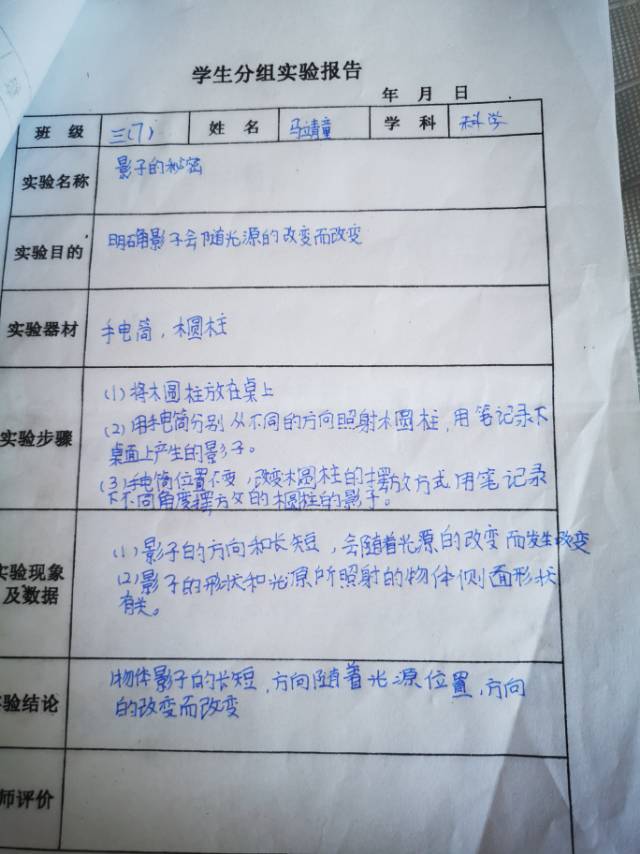 学生分组实验报告
年 月 日
班 级 三(7) 姓 名 马靖童 学 科 科学
实验名称 影子的秘密
实验目的 明确影子会随光源的改变而改变
实验器材 手电筒，木圆柱
实验步骤
(1) 将木圆柱放在桌上
(2) 用手电筒分别从不同的方向照射木圆柱，用笔记录下
桌面上产生的影子。
(3) 手电筒位置不变，改变木圆柱的摆放方式用笔记录
下不同角度摆方的木圆柱的影子。
实验现象
及数据
(1) 影子的方向和长短，会随着光源的改变而发生改变
(2) 影子的形状和光源所照射的物体侧面形状
有关。
实验结论
物体影子的长短，方向随着光源位置，方向
的改变而改变
师评价